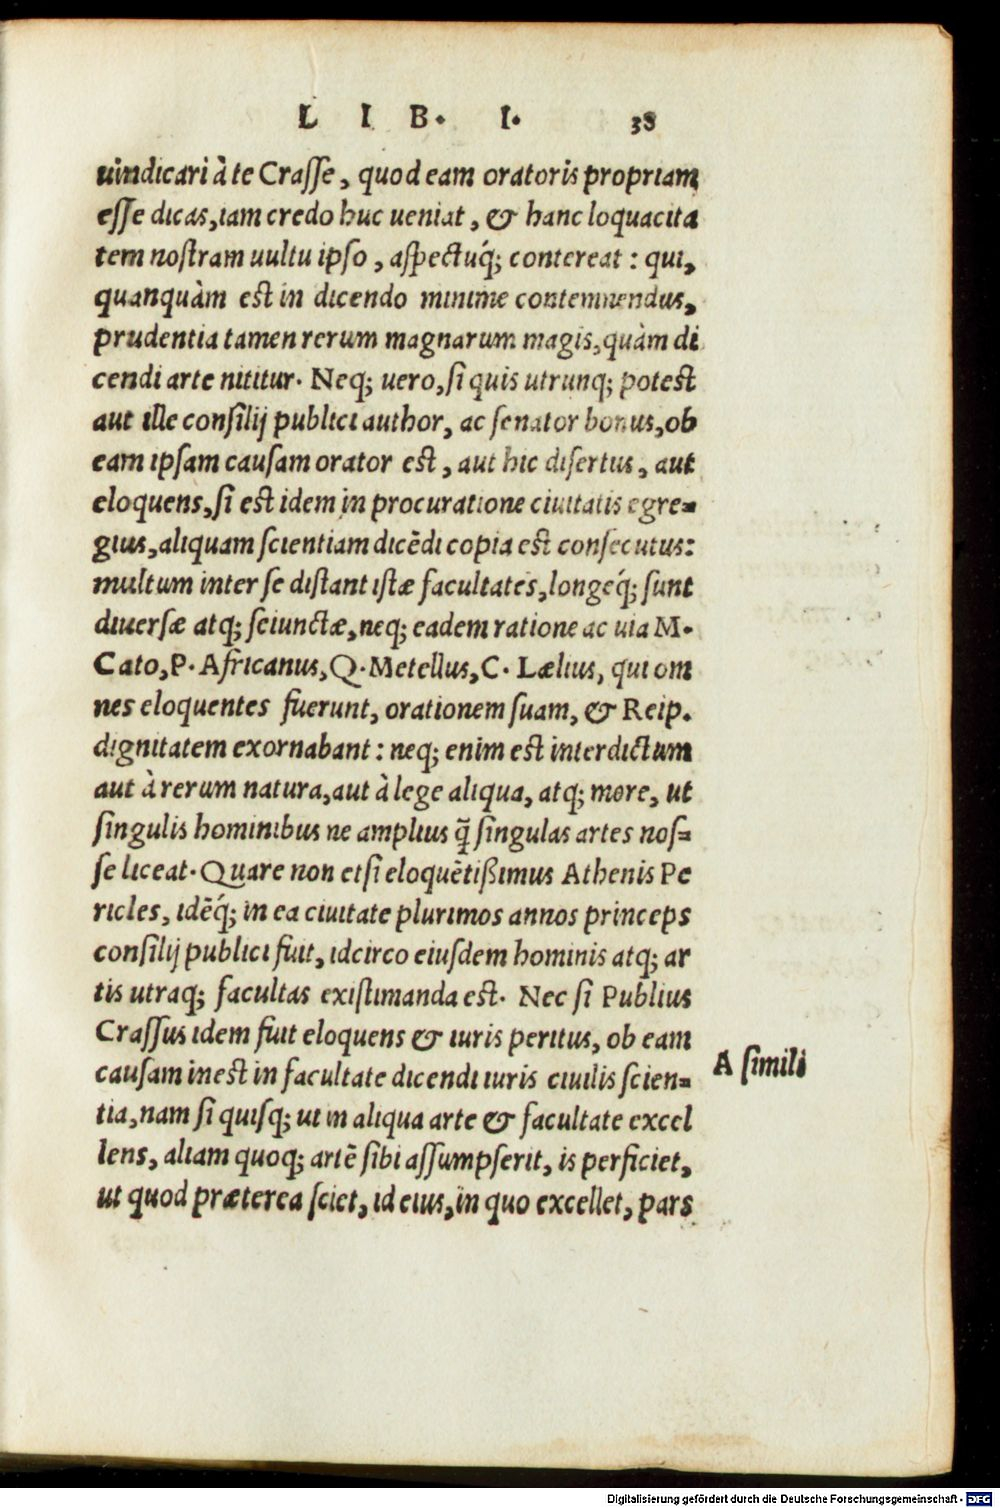 LIB. I. 38
uindicari à te Crasse, quod eam oratoris propriam
esse dicas, iam credo huc ueniat, & hanc loquacita
tem nostram uultu ipso, aspectuq́; contereat: qui,
quanquàm est in dicendo minime contemnendus,
prudentia tamen rerum magnarum magis, quàm di
cendi arte nititur. Neq; uero, si quis utrunq; potest
aut ille consilij publici author, ac senator bonus, ob
eam ipsam causam orator est, aut hic disertus, aut
eloquens, si est idem in procuratione ciuitatis egre-
gius, aliquam scientiam dicēdi copia est consecutus:
multum inter se distant istæ facultates, longeq́; sunt
diuersæ atq; seiunctæ, neq; eadem ratione ac uia M.
Cato, P. Africanus, Q. Metellus, C. Lælius, qui om
nes eloquentes fuerunt, orationem suam, & Reip.
dignitatem exornabant: neq; enim est interdictum
aut à rerum natura, aut à lege aliqua, atq; more, ut
singulis hominibus ne amplius q̃ singulas artes nos-
se liceat. Quare non etsi eloquētißimus Athenis Pe
ricles, idēq́; in ea ciuitate plurimos annos princeps
consilij publici fuit, idcirco eiusdem hominis atq; ar
tis utraq; facultas existimanda est. Nec si Publius
Crassus idem fuit eloquens & iuris peritus, ob eam
causam inest in facultate dicendi iuris ciuilis scien-
tia, nam si quisq; ut in aliqua arte & facultate excel
lens, aliam quoq; artē sibi assumpserit, is perficiet,
ut quod præterea sciet, id eius, in quo excellet, pars
A simili
Digitalisierung gefördert durch die Deutsche Forschungsgemeinschaft - DFG